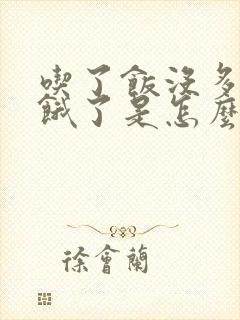 喫了飯沒多
餓了是怎麼
徐會蘭